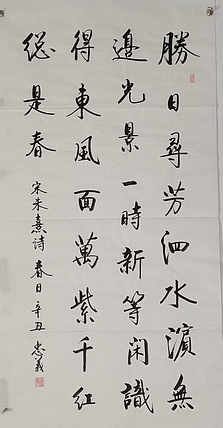 勝日尋芳泗水濱無
邊光景一時新等闲識
得東風面萬紫千紅
總是春
宋朱熹詩 春日 辛丑 忠義